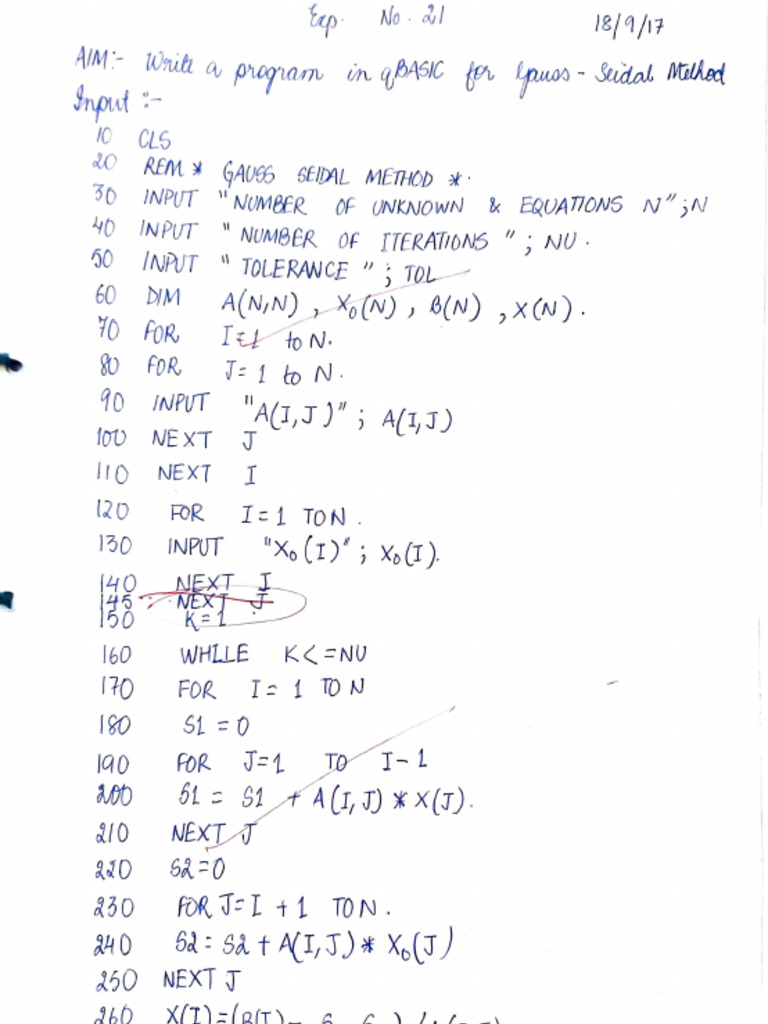 Exp. No. 21 18/9/17
AIM:- Write a program in qBASIC for Gauss - Seidal Method
Input :-
10 CLS
20 REM * GAUSS SEIDAL METHOD *.
30 INPUT "NUMBER OF UNKNOWN & EQUATIONS N";N
40 INPUT "NUMBER OF ITERATIONS"; NU.
50 INPUT "TOLERANCE"; TOL
60 DIM A(N,N), X₀(N), B(N), X(N).
70 FOR I=1 to N.
80 FOR J=1 to N.
90 INPUT "A(I,J)"; A(I,J)
100 NEXT J
110 NEXT I
120 FOR I=1 TO N.
130 INPUT "X₀(I)"; X₀(I).
140 NEXT I
145 NEXT J
150 K=1
160 WHILE K<=NU
170 FOR I= 1 TO N
180 S1 = 0
190 FOR J=1 TO I-1
200 S1 = S1 + A(I,J) * X(J).
210 NEXT J
220 S2=0
230 FOR J=I+1 TO N.
240 S2= S2 + A(I,J) * X₀(J)
250 NEXT J
260 X(I)=(B(I)-